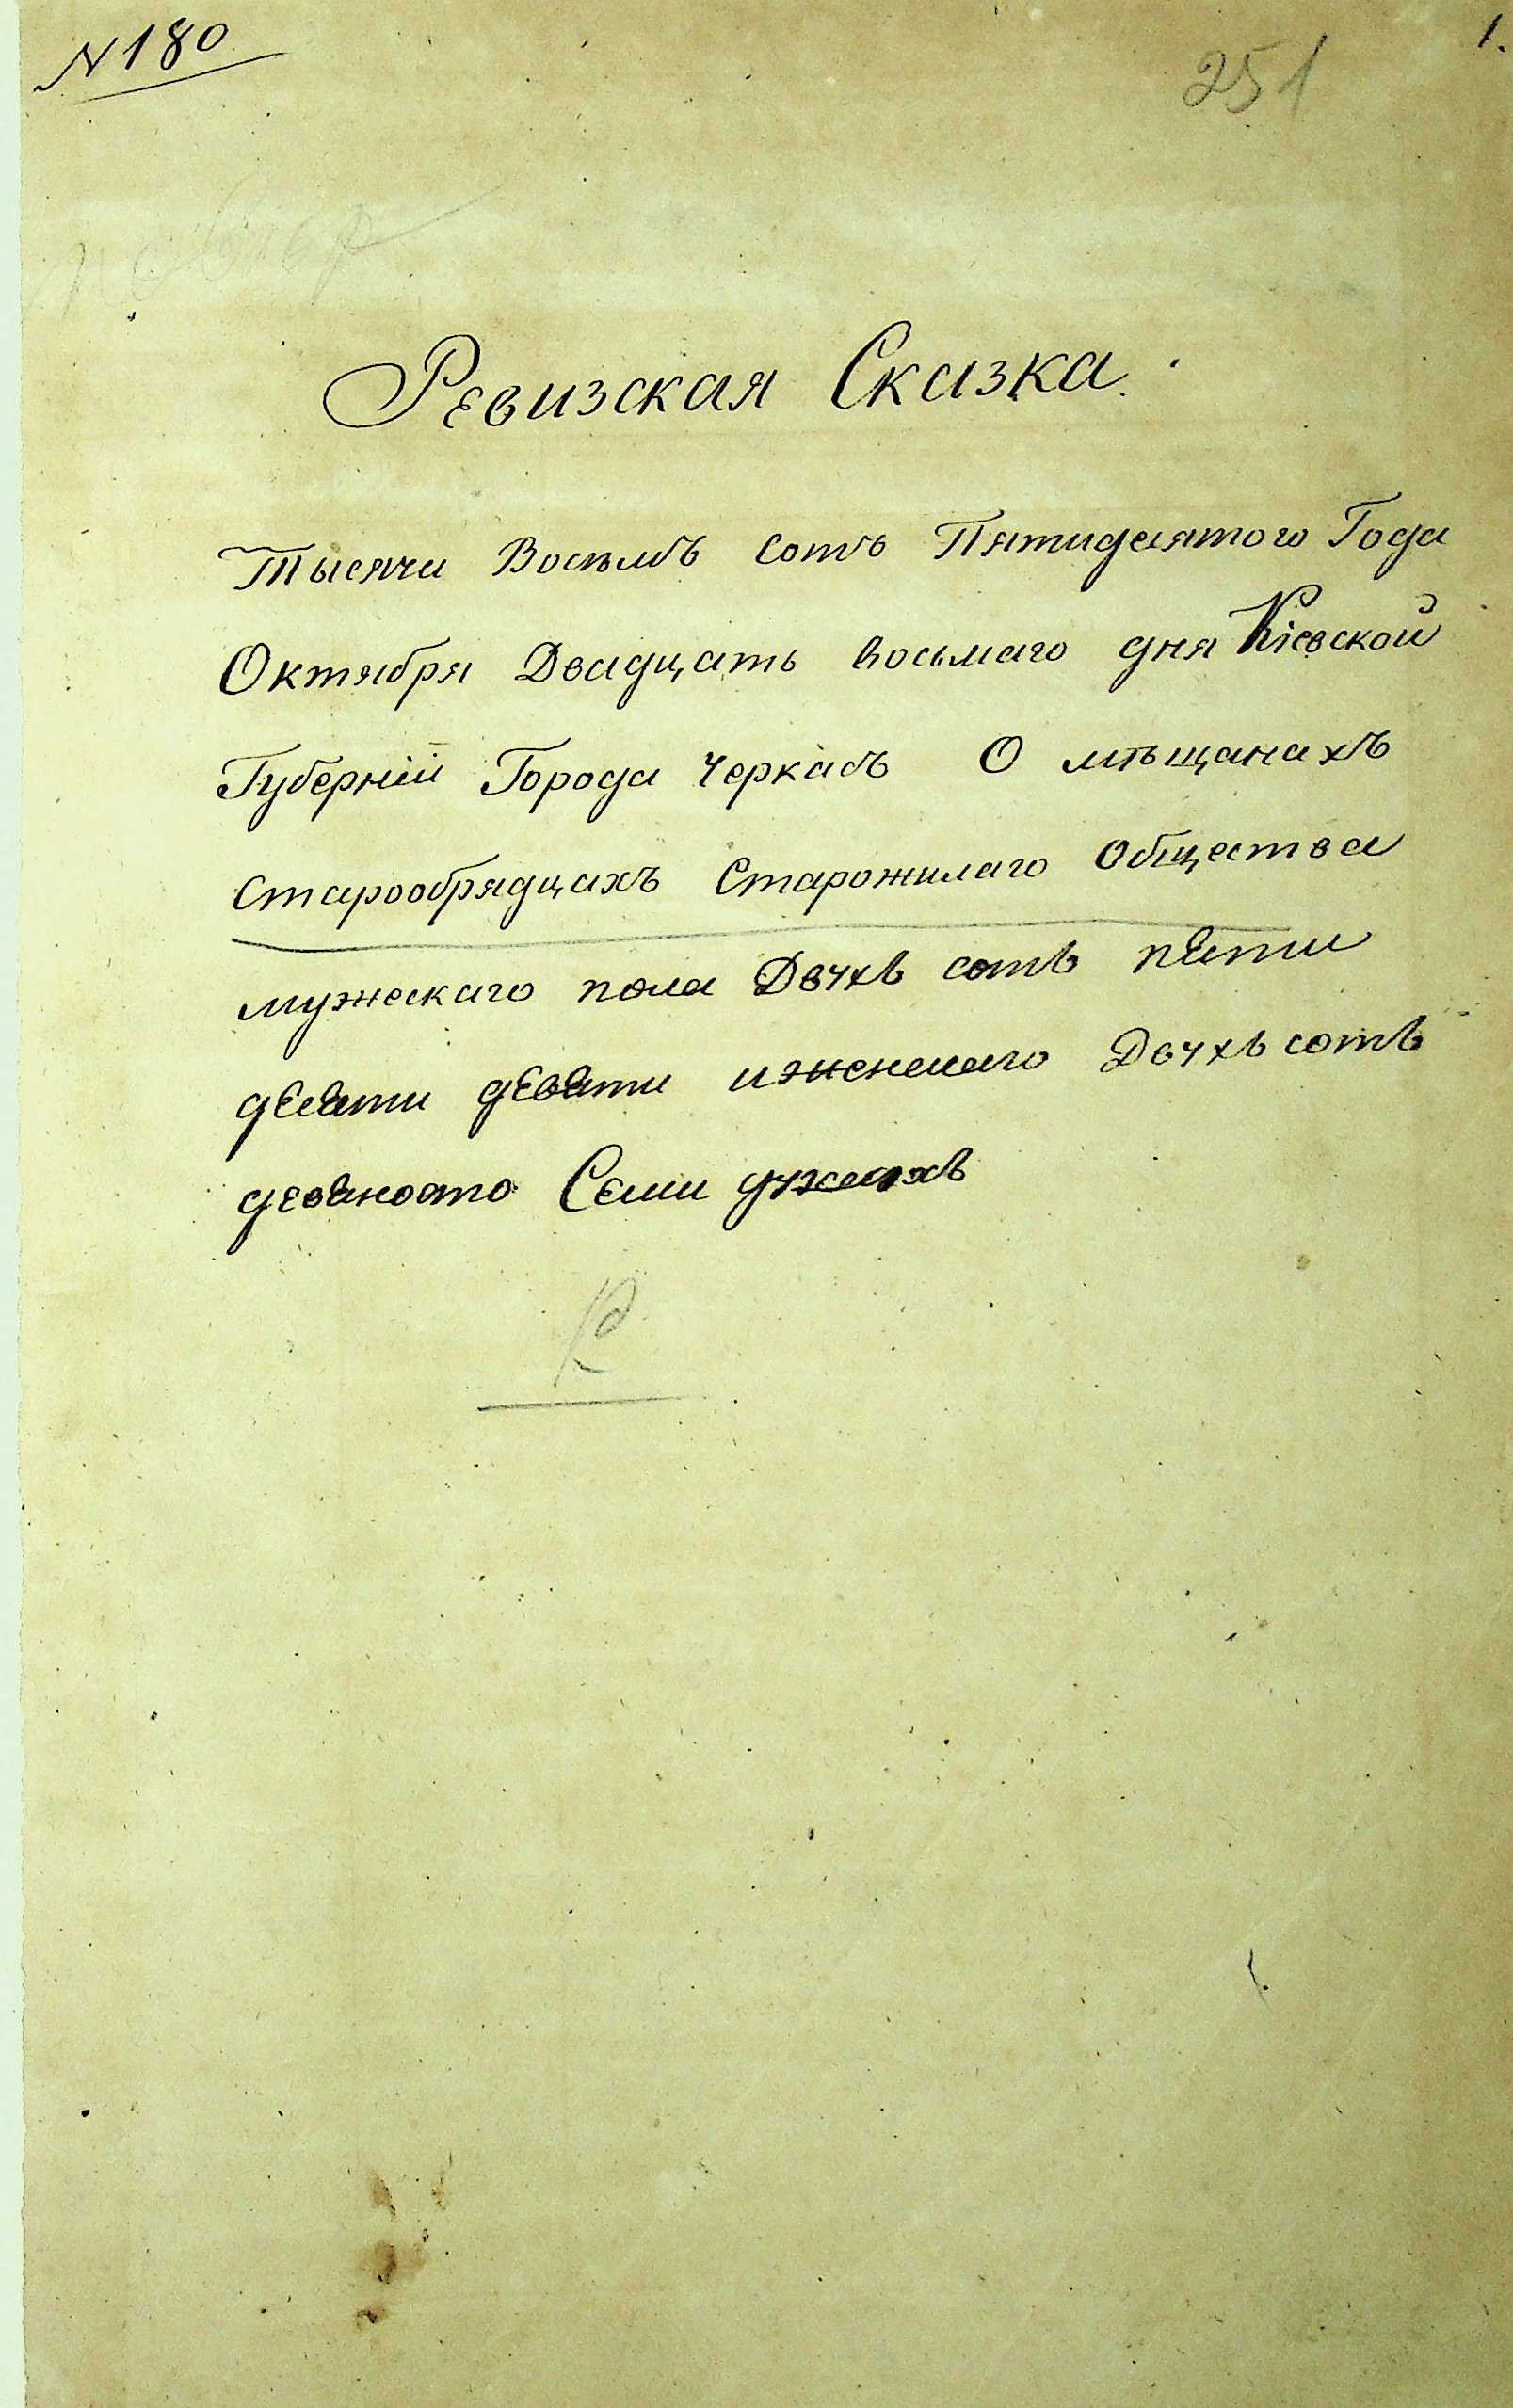 N 180
251
1.
Ревизская Сказка.
Тысячи Восѣмъ Сотъ Пятидесятого Года
Октября Двадцать восьмаго дня Кіевской
Губерніи Города Черкасъ О мѣщанахъ
Старообрядцахъ Старожилаго Общества
мужескаго пола Двухъ сотъ пяти
десяти девяти и женскаго Двухъ сотъ
девяносто Семи душахъ